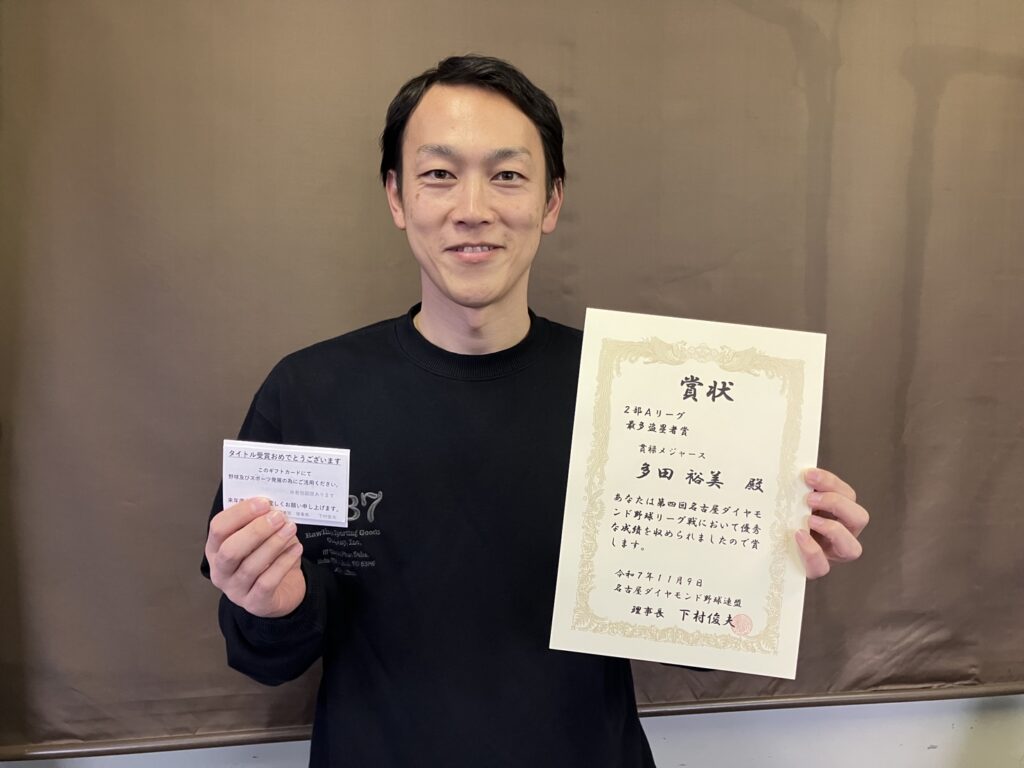 タイトル受賞おめでとうございます
このギフトカードにて
野球及びスポーツ発展の為にご活用ください。
来年度
しくお願い申し上げます。
下村俊夫
37
Rawlings Sporting Goods
Company, Inc.
賞状
2部Aリーグ
最多盗塁者賞
貫禄メジャース
多田 裕美 殿
あなたは第四回名古屋ダイヤモ
ンド野球リーグ戦において優秀
な成績を収められましたので賞
します。
令和7年11月9日
名古屋ダイヤモンド野球連盟
理事長 下村俊夫